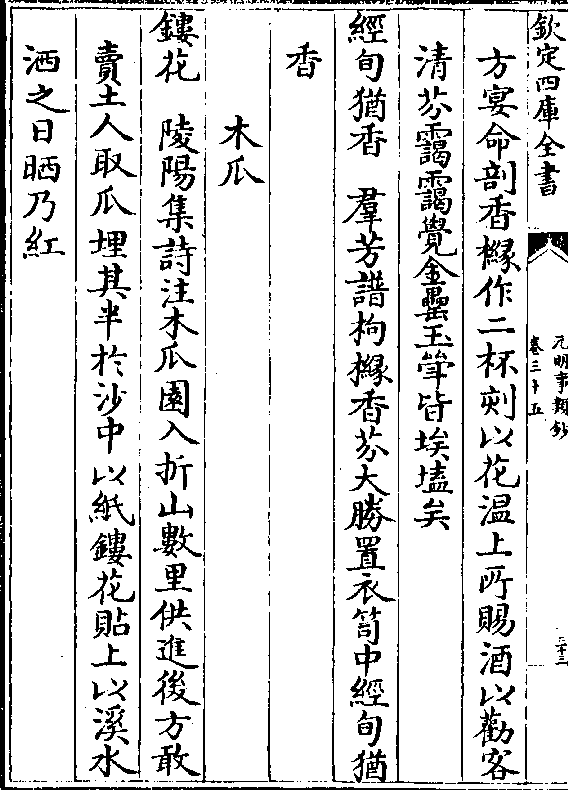 欽定四庫全書
元明事類鈔
卷三十五
二十三
方宴命剖香櫞作二杯刻以花温上所賜酒以勸客
清芬靄靄覺金罍玉斝皆埃壒矣
經旬猶香　羣芳譜枸櫞香芬大勝置衣笥中經旬猶
香
木瓜
鏤花　陵陽集詩注木瓜園入折山數里供進後方敢
賣土人取瓜埋其半於沙中以紙鏤花貼上以溪水
洒之日晒乃紅